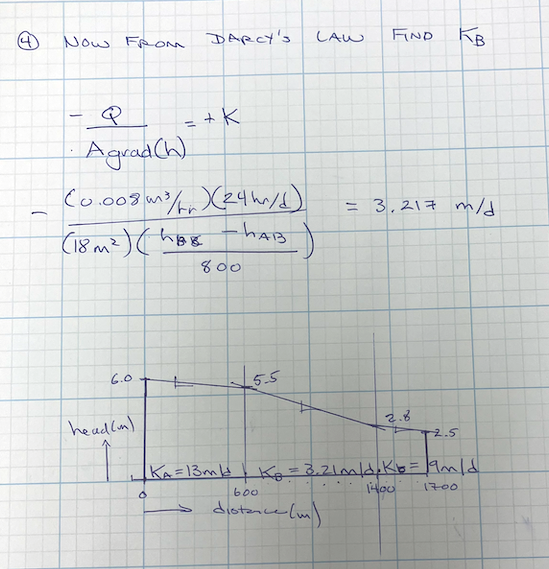 ④ NOW FROM DARCY'S LAW FIND KB
- Q / A grad(h) = + K
- (0.008 m³/hr)(24 hr/d) / (18 m²)( - hAB / 800 ) = 3.217 m/d
6.0
5.5
2.8
2.5
head(m)
KA = 13 m/d KB = 3.21 m/d = 9 m/d
0 600 1400 1700
distance (m)